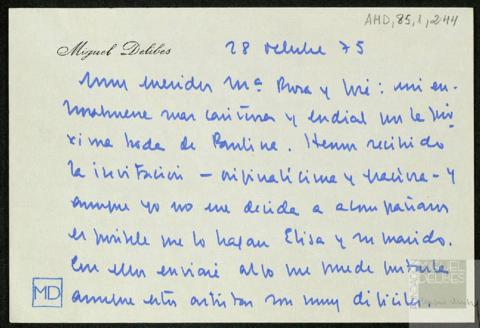 AMD, 85, 1, 244
Miguel Delibes
28 octubre 75
Muy queridos Mª Rosa y José: mi en-
horabuena mas cariñosa y cordial por la pró-
xima boda de Paulina. Hemos recibido
la invitación – originalísima y graciosa – y
aunque yo no me decida a acompañaros
es posible que lo hagan Elisa y su marido.
Con ellos enviaré algo que puede gustarle
aunque estos artistas son muy difíciles.
MD
MIGUEL
DELIBES